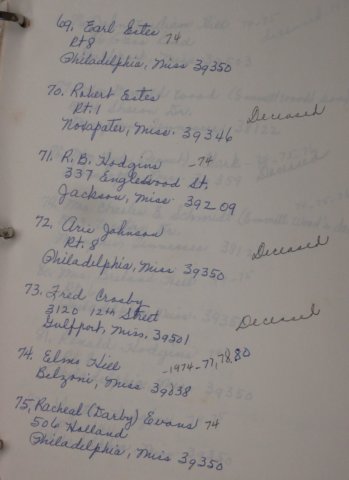 69. Earl Estes 74
Rt 8
Philadelphia, Miss 39350
70. Robert Estes
Rt. 1
Deceased
Noxapater, Miss. 39346
71. R. B. Hodgins -74
337 Englewood St,
Jackson, Miss. 39209
72. Arie Johnson
Rt. 8
Deceased
Philadelphia, Miss 39350
73. Fred Crosby
3120 12th Street
Deceased
Gulfport, Miss. 39501
74. Elms -1974-77,78,80
Belzoni, Miss 39038
75, Racheal (Darby) Evans 74
506 Holland
Philadelphia, Miss 39350